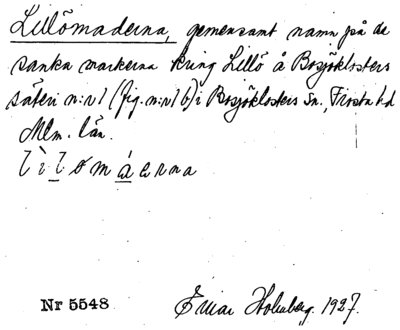 Lillömaderna, gemensamt namn på de
sanka markerna kring Lillö å Bosjöklosters
säteri n:r 1 (fig. n:r 1 b) i Bosjöklosters Sn., Frosta hd
Mlm. län.
lìlømáɛrna
Nr 5548 Einar Holmberg. 1927.